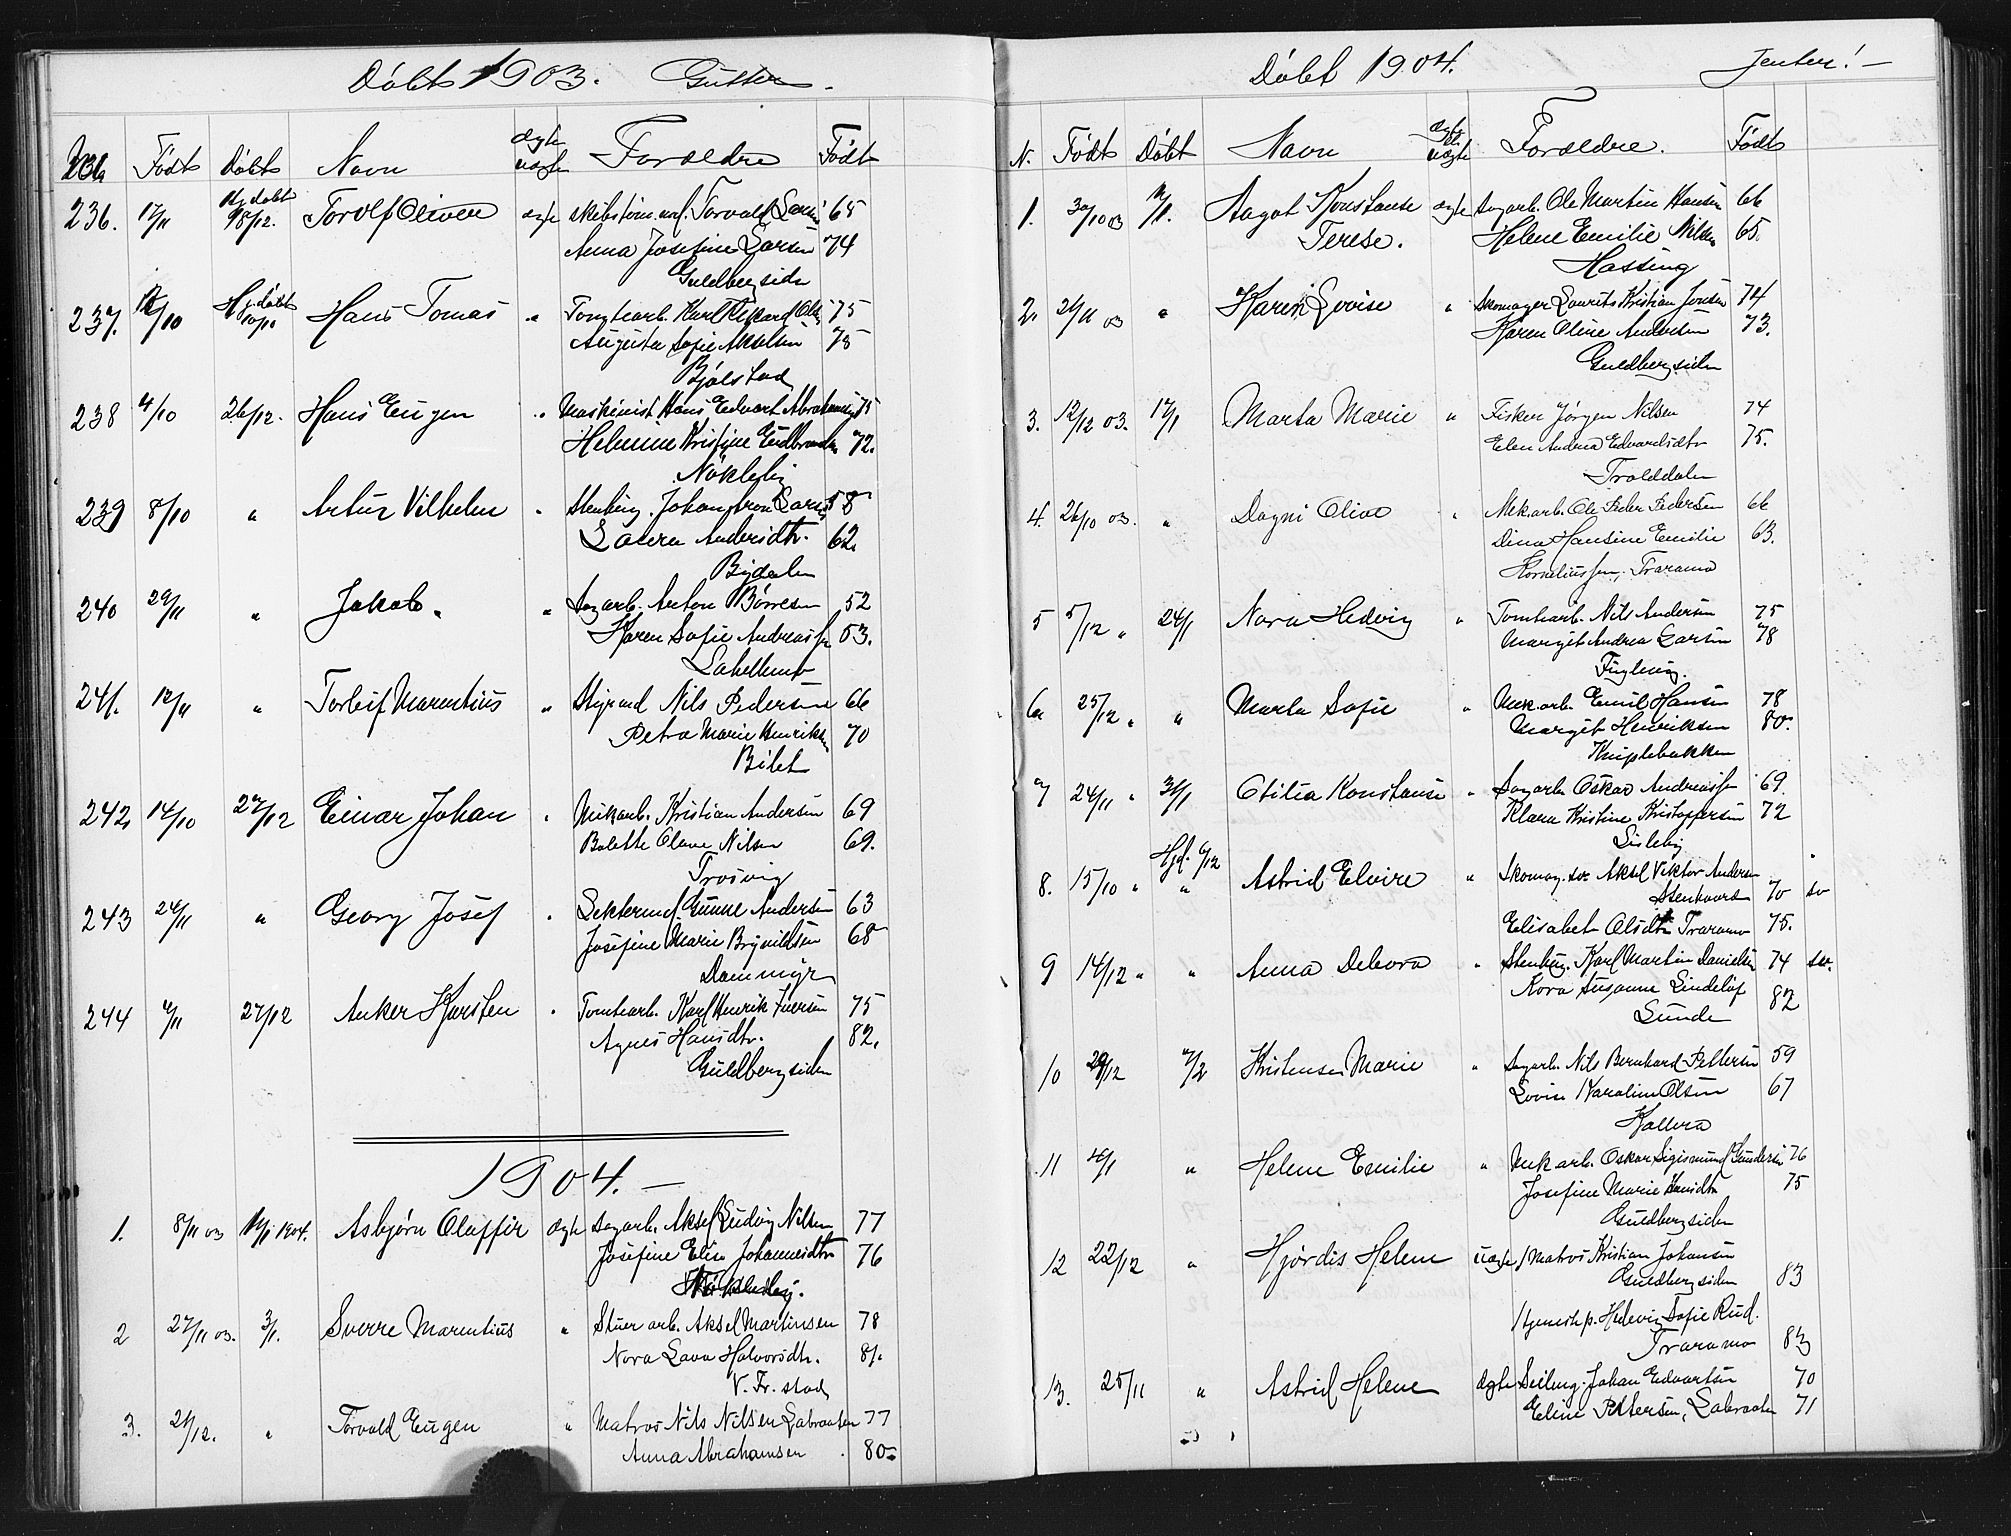 Døbt 1903. Gutter.
No. Født Døbt Navn ægte uægte Forældre Født
236. 17/11 Hj. døbt 18/12. Torolf Oliver ægte Skibstøm. Torvald Larsen 65
Anna Josefine Larsen 74
Guldbergsiden
237. 10/10 Hj. døbt 10/10 Hans Tomas " Tomtearb. Karl Rikard Olsen 75
Augusta Sofie Akselsen 75
Bjølstad
238 4/10 26/12. Hans Eugen " Maskinist Hans Edvart Abrahamsen 75
Helmine Kristine Gudbrandsen 72.
Nøkleby
239 8/10 " Artur Vilhelm " Stenhug. Johan Aron Larsen 58
Laura Andersdtr. 62.
Bydalen
240 29/11 " Jakob. " Sagarb. Anton Børresen 52
Karen Sofie Andreassen 53.
Lahellemo
241. 12/11 " Torleif Marentius " Styrmd Nils Pedersen 66
Petra Marie Henriksen 70
Bilet
242, 14/10 27/12 Einar Johan " Mekarb. Kristian Andersen 69
Bolette Olava Nilsen 69.
Trosvig
243 24/11 " Georg Josef " Gunne Andersen 63
Josefine Marie Brynildsen 68
Dammyr
244 4/11 27/12 Anker Karsten " Tomtearb. Karl Henrik Iversen 75
Agnes Hansdtr. 82.
Guldbergsiden
1904. —
1. 8/11 03 10/1 1904. Asbjørn Olaffir ægte Sagarb. Aksel Ludvig Nilsen 77
Josefine Elise Johannesdtr 76
Nøkleby.
2 27/11 03. 3/1. Sverre Marentius " Stuerarb. Aksel Martinsen 78
Nora Lava Halvorsdtr. 81.
V. Fr. stad
3. 21/12. " Torvald Eugen " Matros Nils Nilsen Labraaten 77
Anna Abrahamsen 80
Døbt 1904. Jenter! —
N. Født Døbt Navn ægte uægte Forældre. Født
1. 30/10 03 10/1. Aagot Konstanse ægte Sagarb. Ole Martin Hansen 66
Terese. Helene Emilie Nilsen 65.
Hassing
2. 29/11 03 " Karen Lovise " Skomager Laurits Kristian Jensen 74
Karen Oline Andersen 73.
Guldbergsiden
3. 12/12 03. 17/1 Marta Marie " Fisker Jørgen Nilsen 74
Elen Andrea Edvardsdtr 75.
Trolddalen
4. 26/10 03. " Dagni Olive " Mek.arb. Ole Peder Pedersen 66
Dina Hansine Emilie 63.
Korneliussen, Traramo
5 5/12 " 24/1 Nora Hedvig " Tomtearb. Nils Andersen 75
Margit Andrea Larsen 78
Fuglevig.
6 25/12 " " Marta Sofie " Mek.arb. Emil Hansen 78
Margit Henriksen 80.
Kniplebakken
7 24/11 " 31/1 Otilia Konstanse " Sagarb. Oskar Andreassen 69.
Klara Kristine Kristoffersen 72
Sisleby
8. 15/10 " Hjd. 6/12 " Astrid Elvire " Skomag. sv. Aksel Viktor Andersen
Stenkvard 70 sv
Elisabet Olsdtr Traramo 75.
9 14/12 " " Anna Debora " Stenhug. Karl Martin Danielsen 74 sv.
Kora Susanne Lindeløf 82
Sunde
10 29/12 7/2 Kristense Marie " Sagarb. Nils Bernhard Pettersen 59
Lovise Karoline Olsen 67
Kallera
11 10/1 " Helene Emilie " Mek arb. Oskar Sigismund Gundersen 76
Josefine Marie Hansdtr 75
Guldbergsiden
12 22/12 " Hjørdis Helene uægte Matros Kristian Johansen
Guldbergsiden 83
Tjenestep. Hedevig Sofie Rud.
Traramo 83
13. 25/11 " Astrid Helene ægte Seilmg. Johan Edvartsen 70
Eline Pettersen, Labraaten 71